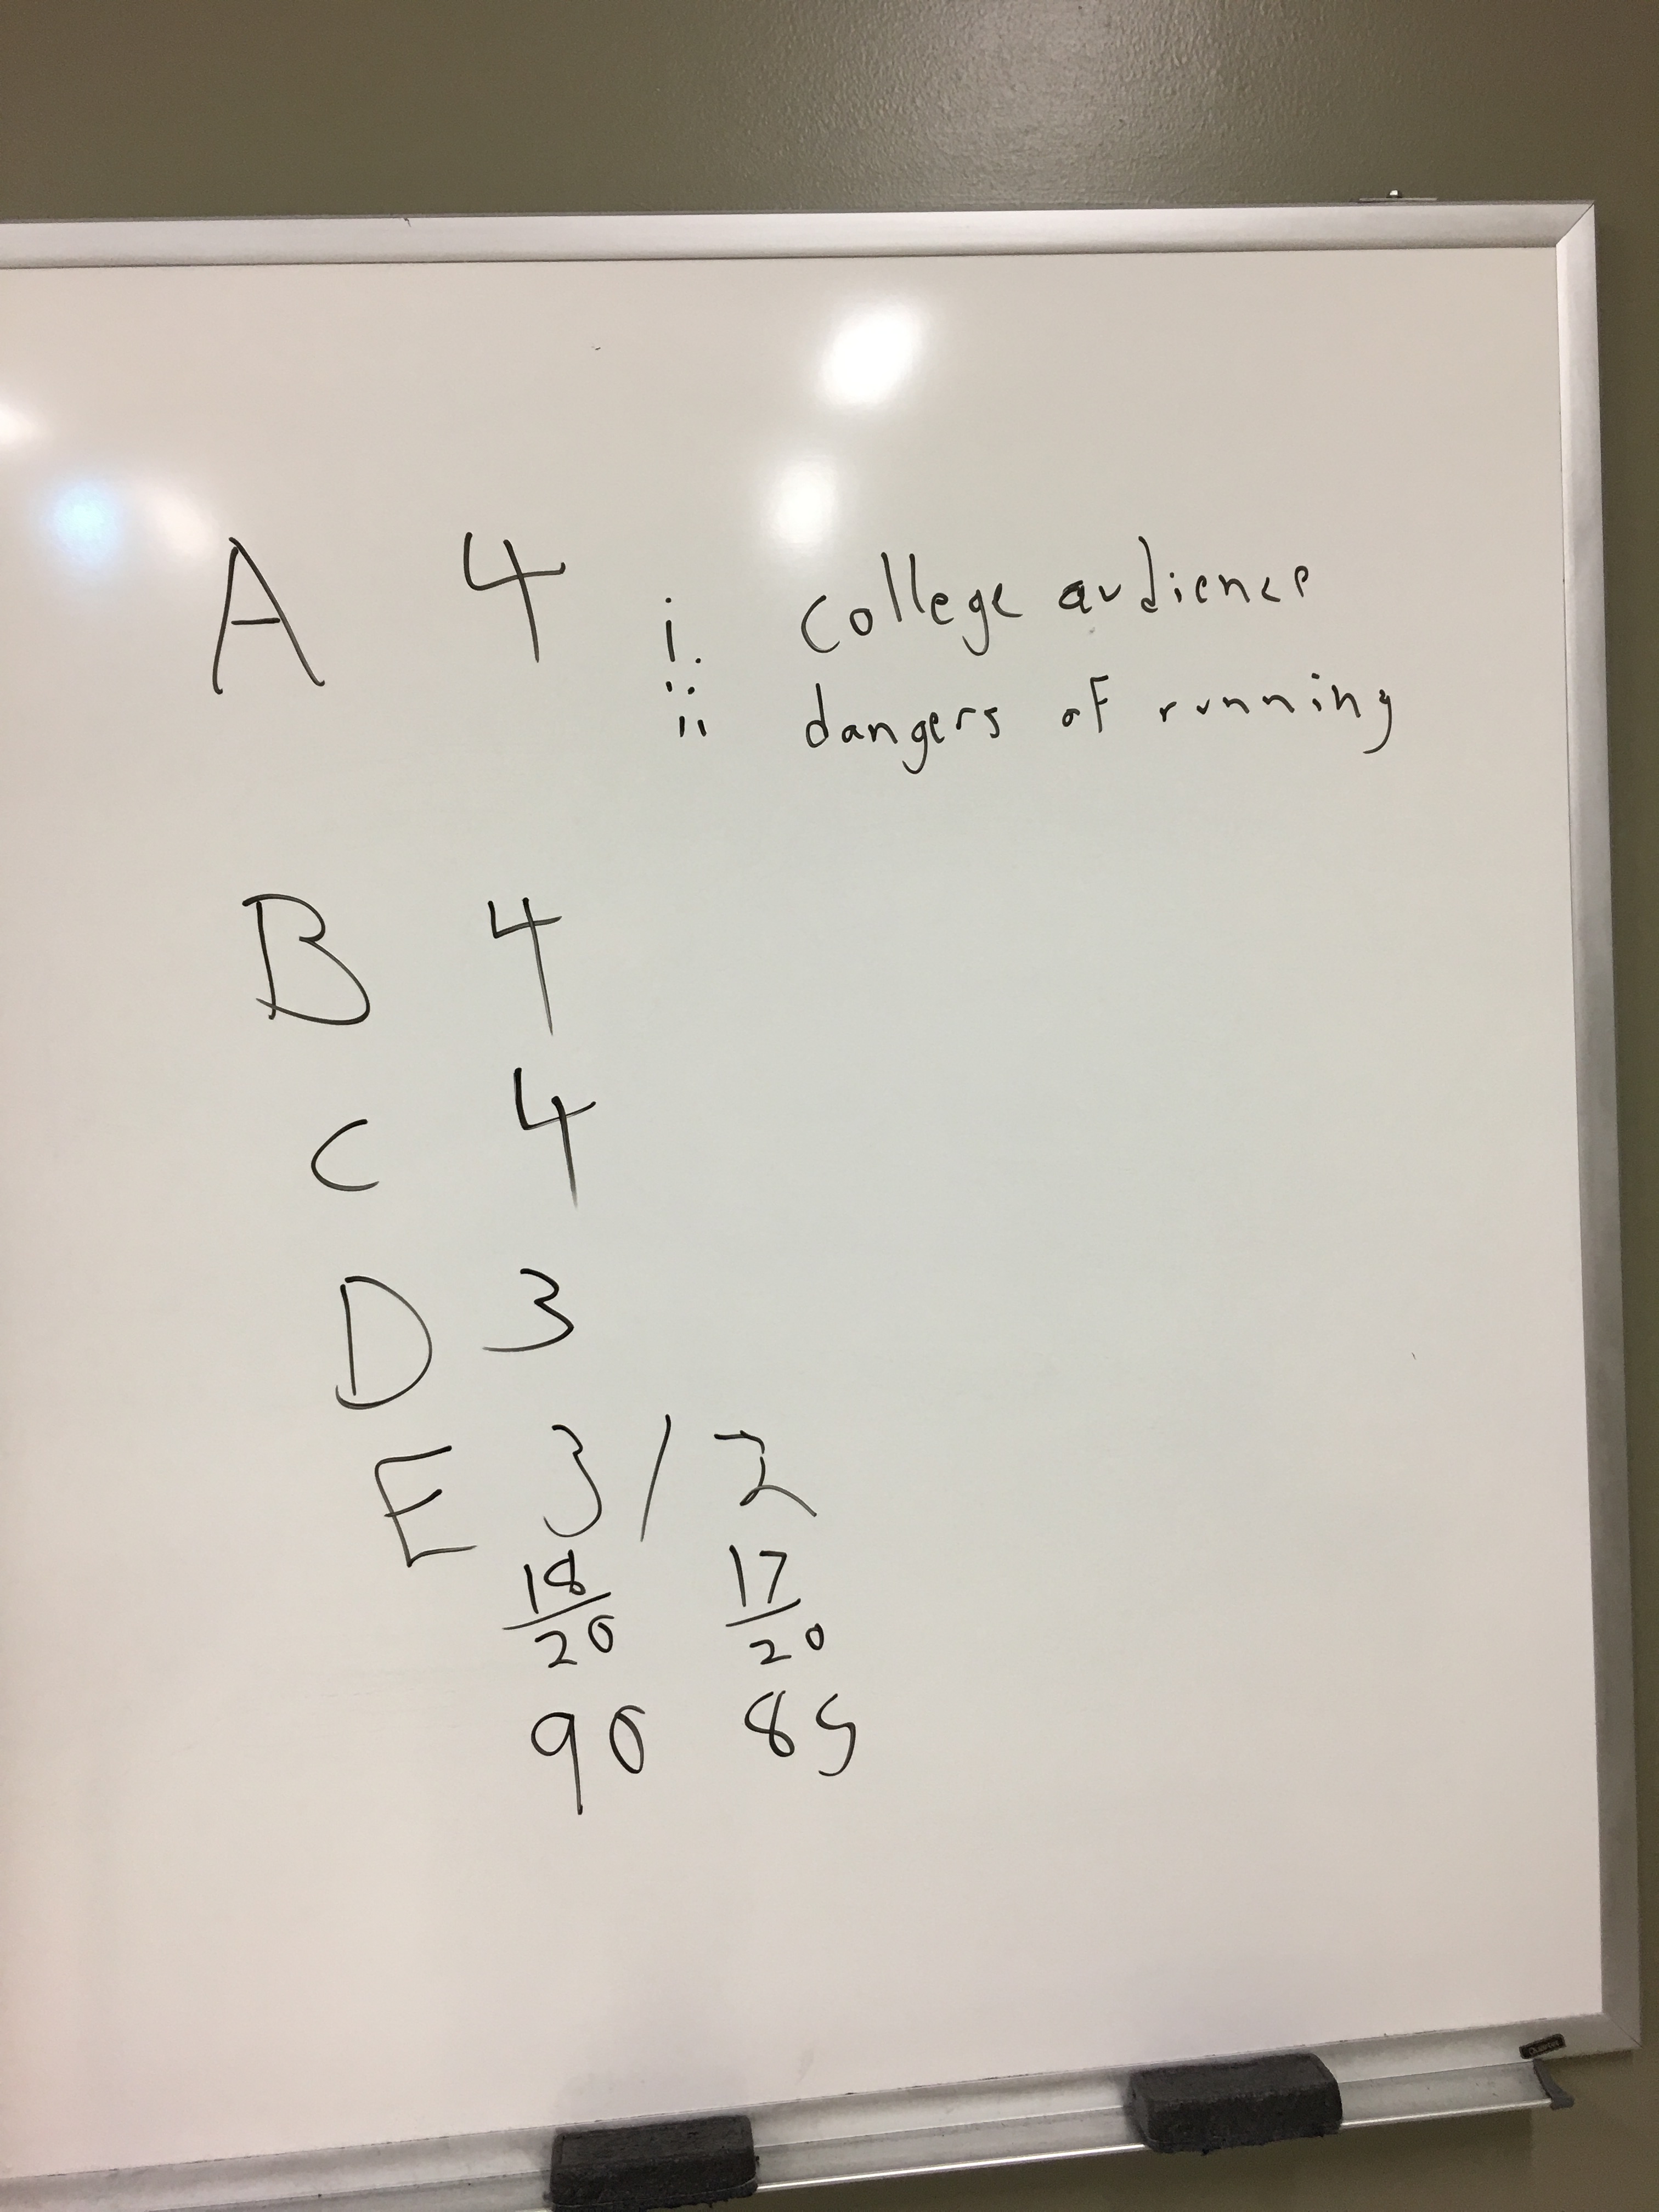 A 4 i. college audience
ii dangers of running
B 4
C 4
D 3
E 3/2
18/20 17/20
90 85